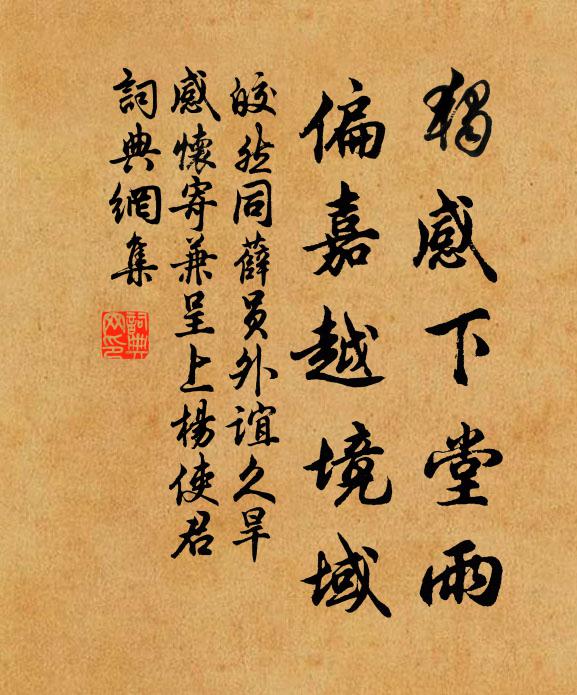 獨感下堂雨
偏嘉越境域
皎然同薛員外誼久旱
感懷寄兼呈上楊使君
詞典網集
詞典
网印